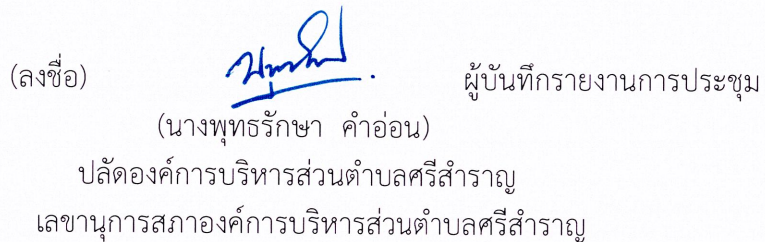 (ลงชื่อ) ผู้บันทึกรายงานการประชุม
(นางพุทธรักษา คำอ่อน)
ปลัดองค์การบริหารส่วนตำบลศรีสำราญ
เลขานุการสภาองค์การบริหารส่วนตำบลศรีสำราญ